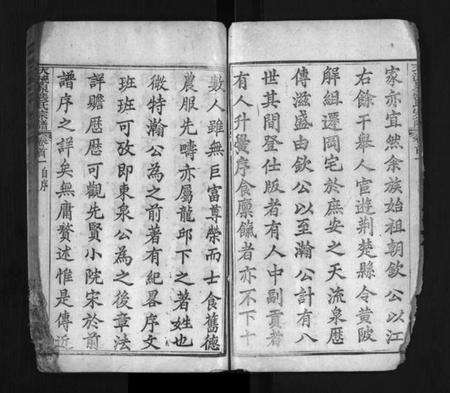 家亦宜然余族始祖朝欽公以江
右餘干舉人宦遊荆楚縣令黄陂
解組還岡宅於庶安之天流泉歷
傳滋盛由欽公以至瀚公計有八
世其間登仕版者有人中副貢者
有人升黌序食廩餼者亦不下十
數人雖無巨富尊榮而士食舊德
農服先疇亦屬龍邱下之著姓也
微特瀚公為之前著有紀畧序文
班班可攷即東泉公為之後章法
詳贍歷歷可觀先賢小院宋於前
譜序之詳矣無庸贅述惟是傳近
氏宗譜 卷首 自序